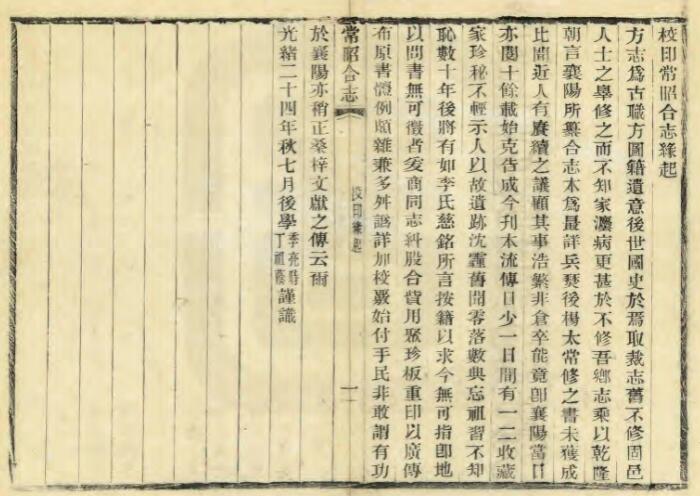 校印常昭合志緣起
方志爲古職方圖籍遺意後世國史於焉取裁志舊不修固邑
人士之辜修之而不知家瀍病更甚於不修吾鄉志乘以乾隆
朝言襄陽所纂合志本爲最詳兵燹後楊太常修之書未獲成
比聞近人有賡續之議顧其事浩繁非倉卒能竟卽襄陽當日
亦閱十餘載始克告成今刊本流傳日少一日間有一二收藏
家珍秘不輕示人以故遺跡沈霾舊聞零落數典忘祖習不知
恥數十年後將有如李氏慈銘所言按籍以求今無可指卽地
以問書無可徵者爰商同志糾股合貲用聚珍板重印以廣傳
布原書體例頗雜兼多舛譌詳加校覈始付手民非敢謂有功
常昭合志
校印緣起
一
於襄陽亦稍正桑梓文獻之傳云爾
光緒二十四年秋七月後學季亮時丁祖蔭謹識